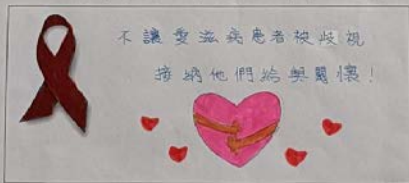 不讓愛滋病患者被歧視
接納他們給與關懷!